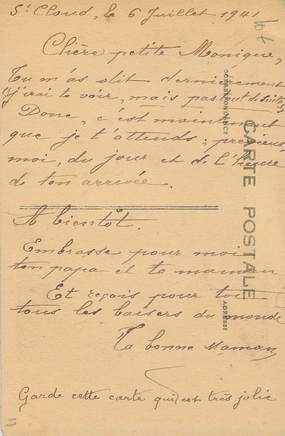 St Cloud, le 6 Juillet 1941
Chère petite Monique,
Tu m as dit dernièrement
"j'irai te voir, mais pas tout de suite"
Donc, c est maintenant
que je t'attends ; préviens
moi, du jour et de l'heure
de ton arrivée.
A bientôt.
Embrasse pour moi
ton papa et ta maman
Et reçois pour toi
tous les baisers du monde
Ta bonne Maman
Garde cette carte qui est très jolie
CARTE POSTALE
CORRESPONDANCE
ADRESSE